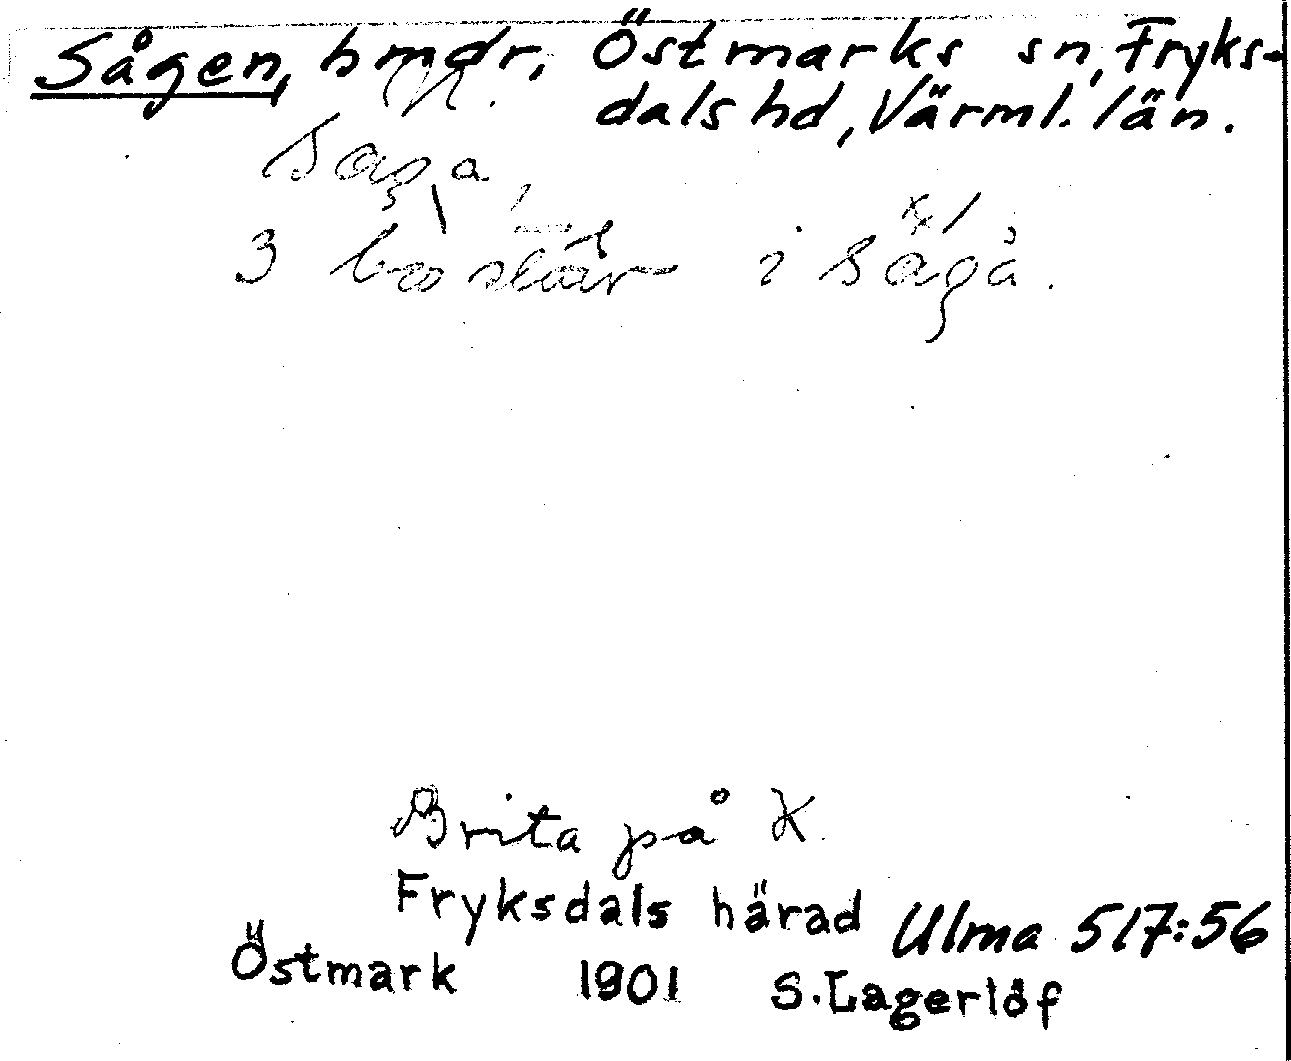 Sågen, hmdr, Östmarks sn, Fryks-
dals hd, Värml. län.
N.
Saga,
3 i sågå.
Brita på K.
Fryksdals härad
Ulma 517:56
Östmark 1901 S. Lagerlöf